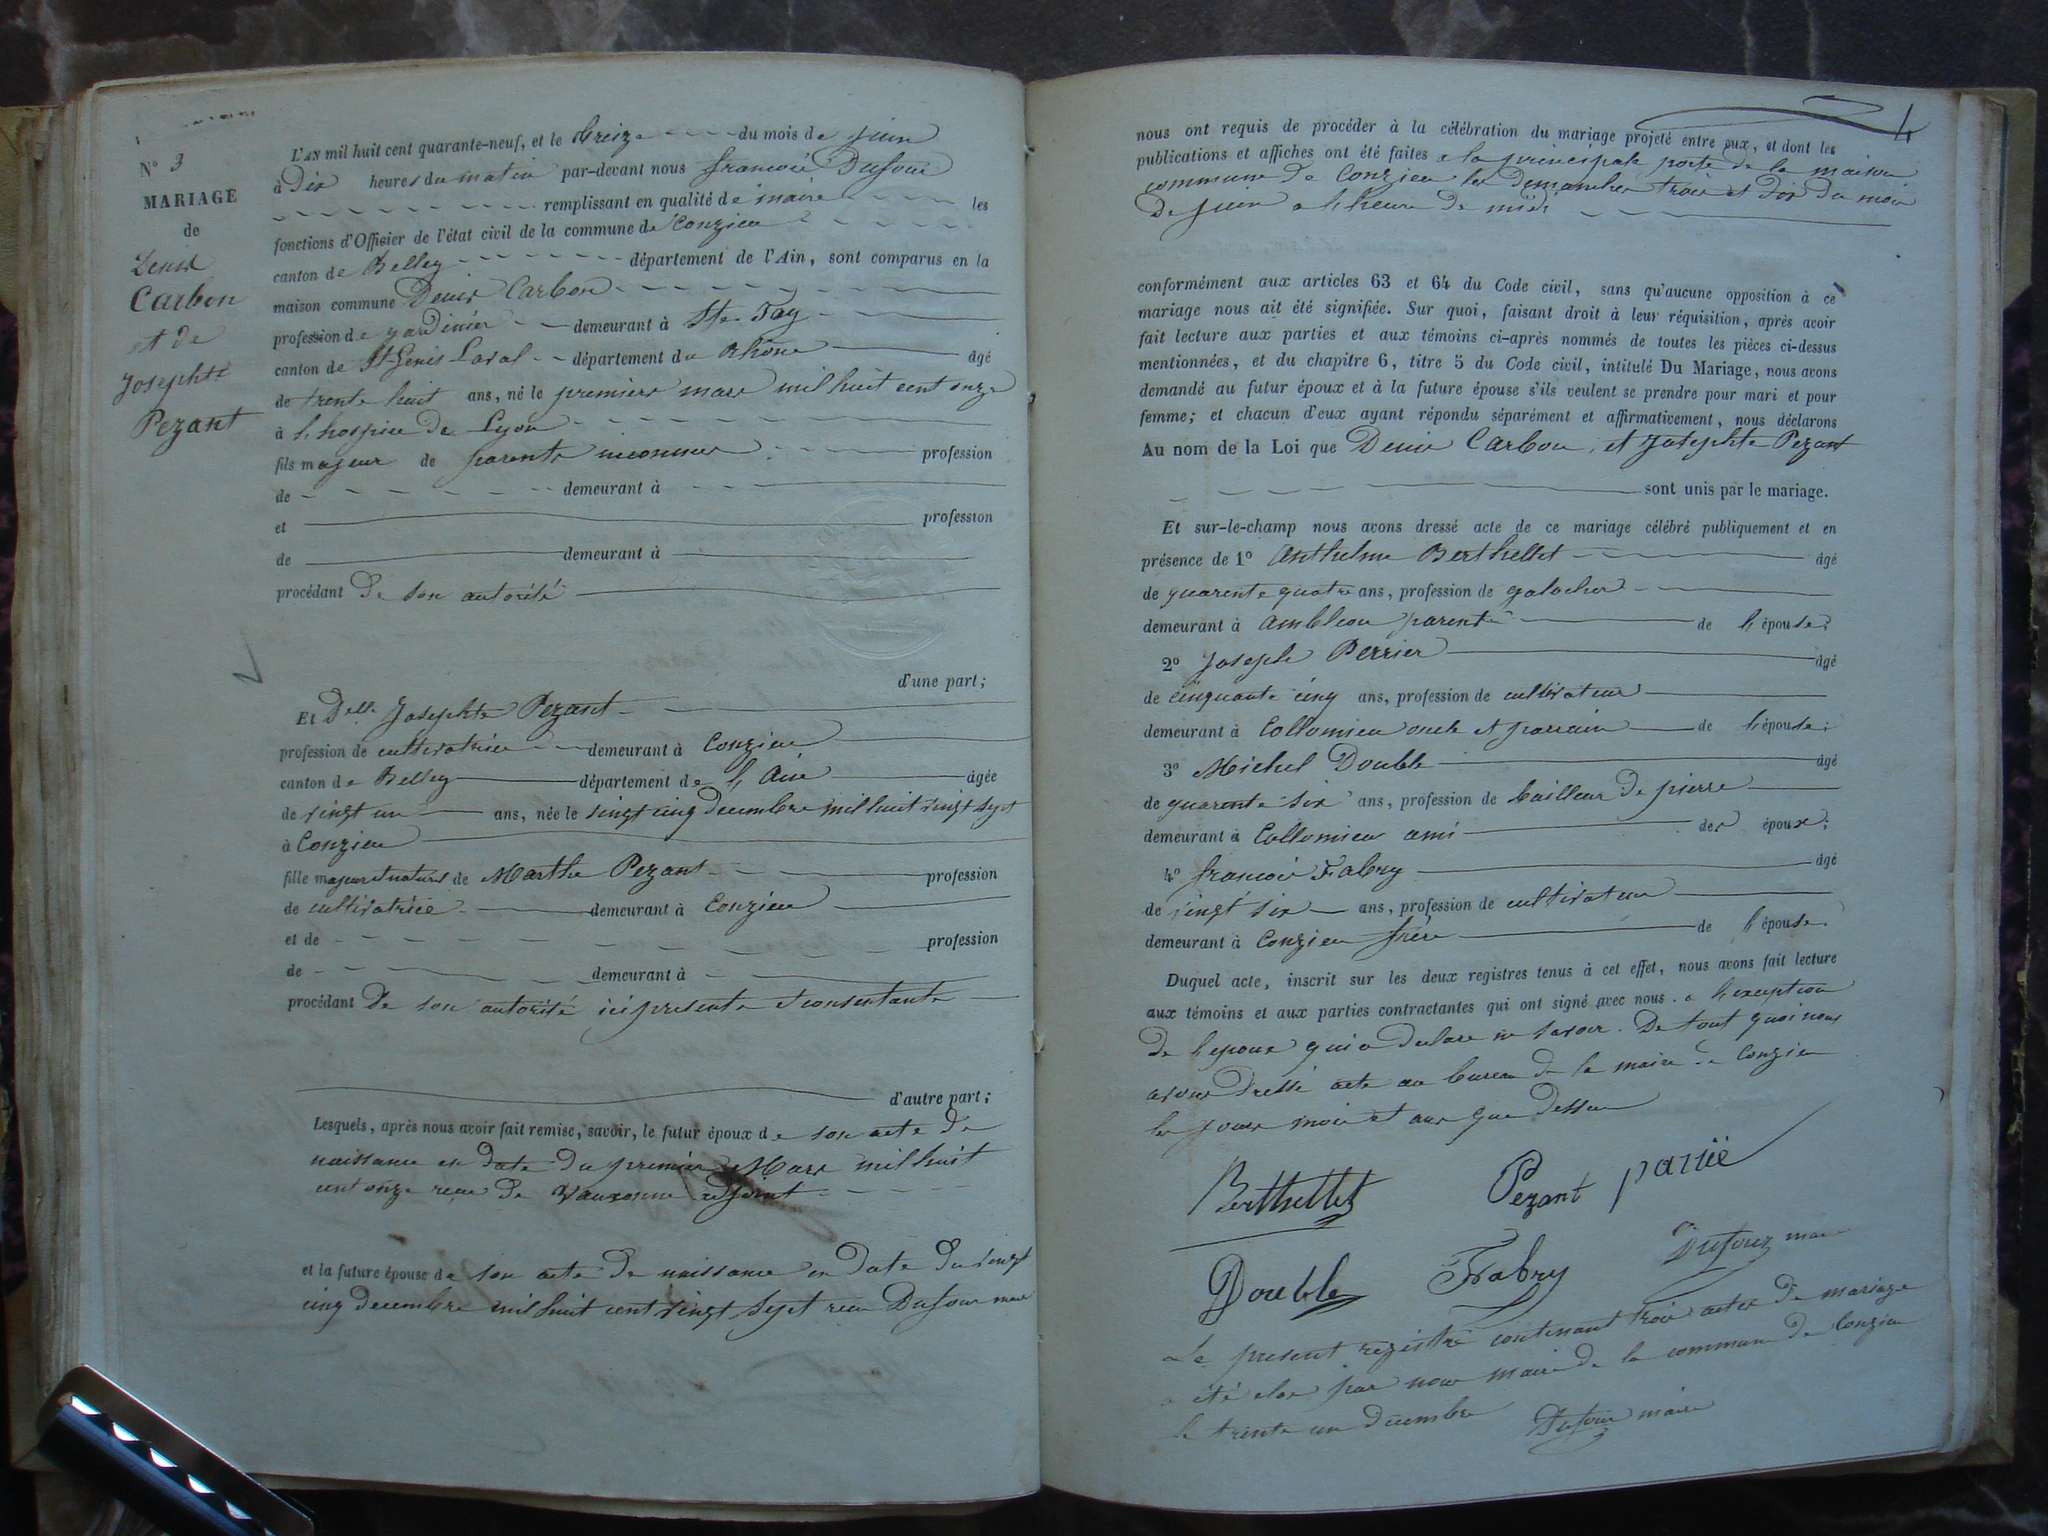 N° 3
MARIAGE
de
Denis
Carbon
et de
Josephte
Pezant
L'AN mil huit cent quarante-neuf, et le treize du mois de juin
à dix heures du matin par-devant nous françois Dufour
remplissant en qualité de maire les
fonctions d'Officier de l'état civil de la commune de Conzieu
canton de Belley département de l'Ain, sont comparus en la
maison commune Denis Carbon
profession de jardinier demeurant à Ste Foy
canton de St Genis Laval département du Rhône âgé
de trente huit ans, né le premiers mars mil huit cent onze
à l hospice de Lyon
fils majeur de parents inconnus profession
de demeurant à
et profession
de demeurant à
procédant de son autorité
d'une part;
Et Delle Josephte Pezant
profession de cultivatrice demeurant à Conzieu
canton de Belley département de l Ain âgée
de vingt un ans, née le vingt cinq decembre mil huit vingt sept
à Conzieu
fille majeur et naturel de Marthe Pezant profession
de cultivatrice demeurant à Conzieu
et de profession
de demeurant à
procédant de son autorité ici presente et consentante
d'autre part;
Lesquels, après nous avoir fait remise, savoir, le futur époux de son acte de
naissance en date du premier Mars mil huit
cent onze recu de Vauxonne adjoint
et la future épouse de son acte de naissance en date du vingt
cinq decembre mil huit cent vingt sept recu Dufour maire
4
nous ont requis de procéder à la célébration du mariage projeté entre eux, et dont les
publications et affiches ont été faites a la principale porte de la maison
commune de Conzieu les dimanches trois et dix du mois
de juin a l heure de midi
conformément aux articles 63 et 64 du Code civil, sans qu'aucune opposition à ce
mariage nous ait été signifiée. Sur quoi, faisant droit à leur réquisition, après avoir
fait lecture aux parties et aux témoins ci-après nommés de toutes les pièces ci-dessus
mentionnées, et du chapitre 6, titre 5 du Code civil, intitulé Du Mariage, nous avons
demandé au futur époux et à la future épouse s'ils veulent se prendre pour mari et pour
femme; et chacun d'eux ayant répondu séparément et affirmativement, nous déclarons
Au nom de la Loi que Denis Carbon, et Josephte Pezant
sont unis par le mariage.
Et sur-le-champ nous avons dressé acte de ce mariage célébré publiquement et en
présence de 1° Anthelme Berthellet âgé
de quarente quatre ans, profession de galocher
demeurant à Ambleon parent de l épouse;
2° Joseph Perrier âgé
de cinquante cinq ans, profession de cultivateur
demeurant à Collomieu oncle et parrain de l épouse;
3° Michel Double âgé
de quarente six ans, profession de tailleur de pierre
demeurant à Collomieu ami des époux;
4° francois Fabry âgé
de vingt six ans, profession de cultivateur
demeurant à Conzieu frère de l épouse.
Duquel acte, inscrit sur les deux registres tenus à cet effet, nous avons fait lecture
aux témoins et aux parties contractantes qui ont signé avec nous. a l exception
de l epoux qui a declare ne savoir. De tout quoi nous
avons dressé acte au bureau de la mairie de Conzieu
les jours mois et ans que dessus
Berthellet Pezant
Double Fabry Dufour maire
Le present registre contenant trois actes de mariage
a été clos par nous maire de la commune de Conzieu
le trente un decembre Dufour maire